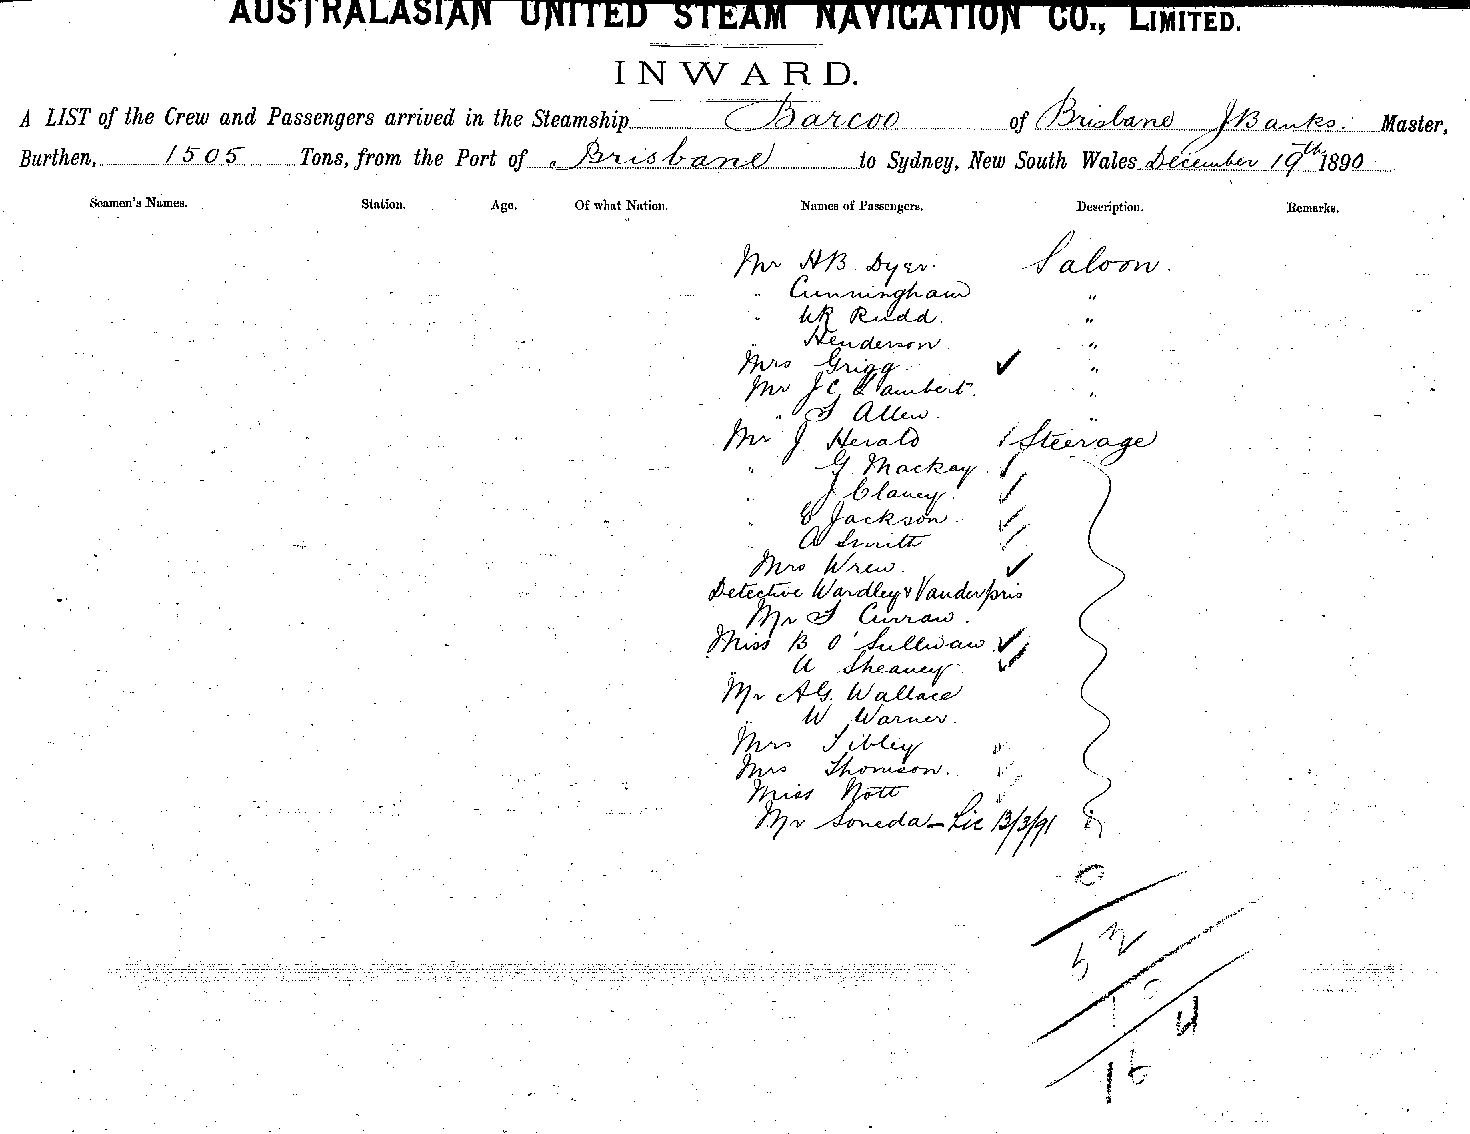 AUSTRALASIAN UNITED STEAM NAVIGATION CO., LIMITED.
INWARD.
A LIST of the Crew and Passengers arrived in the Steamship Barcoo of Brisbane J Banks. Master,
Burthen, 1505 Tons, from the Port of Brisbane to Sydney, New South Wales December 19th 1890
Seamen's Names. Station. Age. Of what Nation. Names of Passengers. Description. Remarks.
Mr HB Dyer. Saloon.
" Cunningham "
" WR Rudd. "
" Henderson "
Mrs Grigg ✓ "
Mr J C Lambert. "
" S Allen. "
Mr J Herald 1 Steerage
" G Mackay ✓
" J Clancy. ✓
" E Jackson ✓
A Smith ✓
Mrs Wrew. ✓
Detective Wardley & Vanderpris
Mr S Curran.
Miss B O'Sullivan ✓
" A Sheaney ✓
Mr AG. Wallace
" W Warner.
Mrs Sibley
Mrs Thomson.
Miss Nott
Mr Soneda - Lic 13/3/91
0
52
10
16 4